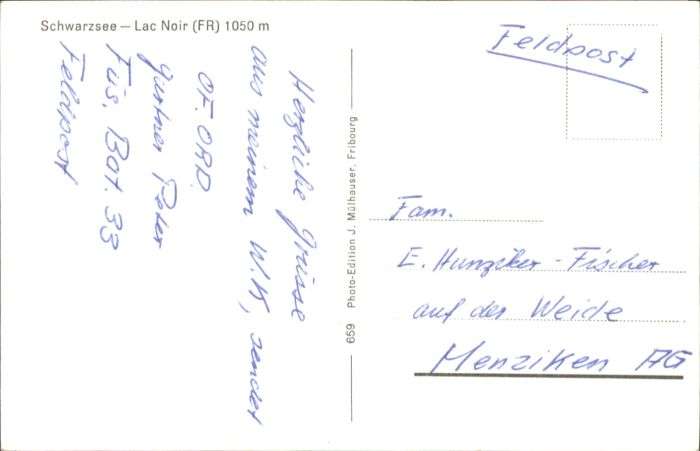 Schwarzsee – Lac Noir (FR) 1050 m
Herzliche Grüsse
aus meinem W.K, sendet
OF. ORD.
Gürtner Peter
Füs. Bat. 33
Feldpost
659 Photo-Edition J. Mülhauser, Fribourg
Feldpost
Fam.
E. Hunziker - Fischer
auf der Weide
Menziken AG